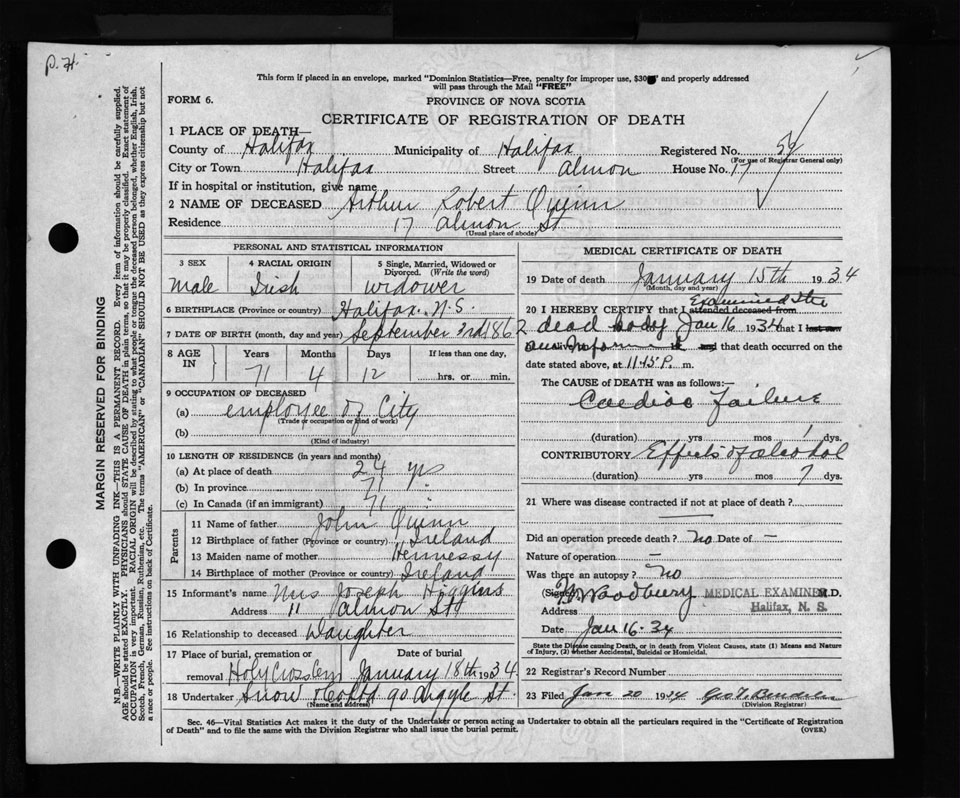 P. H.
This form if placed in an envelope, marked "Dominion Statistics—Free, penalty for improper use, $300" and properly addressed
will pass through the Mail "FREE"
FORM 6.
PROVINCE OF NOVA SCOTIA
CERTIFICATE OF REGISTRATION OF DEATH
1 PLACE OF DEATH—
County of Halifax Municipality of Halifax Registered No. 54
(For use of Registrar General only)
City or Town Halifax Street Almon House No. 17
If in hospital or institution, give name
2 NAME OF DECEASED Arthur Robert Quinn
Residence 17 Almon St
(Usual place of abode)
PERSONAL AND STATISTICAL INFORMATION
3 SEX 4 RACIAL ORIGIN 5 Single, Married, Widowed or
Divorced. (Write the word)
Male Irish widower
6 BIRTHPLACE (Province or country) Halifax N.S.
7 DATE OF BIRTH (month, day and year) September 3rd 1862
8 AGE IN Years Months Days If less than one day,
71 4 12 hrs. or min.
9 OCCUPATION OF DECEASED
(a) employee of City
(Trade or occupation or kind of work)
(b)
(Kind of industry)
10 LENGTH OF RESIDENCE (in years and months)
(a) At place of death 24 yrs
(b) In province 71 "
(c) In Canada (if an immigrant) 71 "
Parents
11 Name of father John Quinn
12 Birthplace of father (Province or country) Ireland
13 Maiden name of mother Hennessy
14 Birthplace of mother (Province or country) Ireland
15 Informant's name Mrs Joseph Higgins
Address 11 Almon St
16 Relationship to deceased Daughter
17 Place of burial, cremation or Date of burial
removal Holy Cross Cem January 18th 1934
18 Undertaker Snow & Co Ltd 90 Argyle St.
(Name and address)
MEDICAL CERTIFICATE OF DEATH
19 Date of death January 15th 1934
(Month, day and year)
20 I HEREBY CERTIFY that I attended deceased from Examined the
dead body Jan 16 1934 that I last saw
and that death occurred on the
date stated above, at 11.45 P. m.
The CAUSE of DEATH was as follows:—
Cardiac Failure
(duration) yrs mos 1 dys.
CONTRIBUTORY Effects of alcohol
(duration) yrs mos 7 dys.
21 Where was disease contracted if not at place of death?
Did an operation precede death? no Date of —
Nature of operation —
Was there an autopsy? no
(Signed) Woodbury MEDICAL EXAMINER M.D.
Address Halifax, N. S.
Date Jan 16 - 34
State the Disease causing Death, or in death from Violent Causes, state (1) Means and Nature
of Injury, (2) whether Accidental, Suicidal or Homicidal.
22 Registrar's Record Number
23 Filed Jan 20 1934
(Division Registrar)
Sec. 46—Vital Statistics Act makes it the duty of the Undertaker or person acting as Undertaker to obtain all the particulars required in the "Certificate of Registration
of Death" and to file the same with the Division Registrar who shall issue the burial permit. (OVER)
MARGIN RESERVED FOR BINDING
N.B.—WRITE PLAINLY WITH UNFADING INK—THIS IS A PERMANENT RECORD. Every item of information should be carefully supplied.
AGE should be stated EXACTLY. PHYSICIANS should STATE CAUSE OF DEATH in plain terms, so that it may be properly classified. Exact statement of
OCCUPATION is very important. RACIAL ORIGIN will be described by stating to what people or tongue the deceased person belonged, whether English, Irish,
Scotch, French, German, Russian, Ruthenian, etc. The terms "AMERICAN" or "CANADIAN" SHOULD NOT BE USED as they express citizenship but not
a race or people. See instructions on back of Certificate.